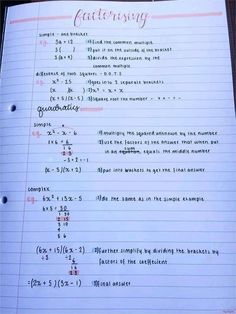 factorising
simple - one bracket
eg. 3a + 12 1) find the common multiple
3( ) 2) put it on the outside of the bracket
3(a + 4) 3) divide the expression by the
common multiple
difference of two squares - D.O.T.S.
eg. x² - 25 1) goes into 2 separate brackets
(x )(x ) x² = x × x
(x + 5)(x - 5) 2) square root the number
quadratics
simple
eg. x² - x - 6 1) multiply the squared unknown by the number
1 × 6 = 6 2) use the factors of the answer that when put
1 6 in an equation equals the middle number
2 3
-3 + 2 = -1
(x - 3)(x + 2) 3) put into brackets to get the final answer
complex
eg. 6x² + 13x - 5 1) do the same as in the simple example
6 × 5 = 30
1 30
2 15
3 10
5 6
(6x + 15)(6x - 2) 2) further simplify by dividing the brackets by
÷3 ÷2 factors of the coefficient
= (2x + 5)(3x - 1) 3) final answer